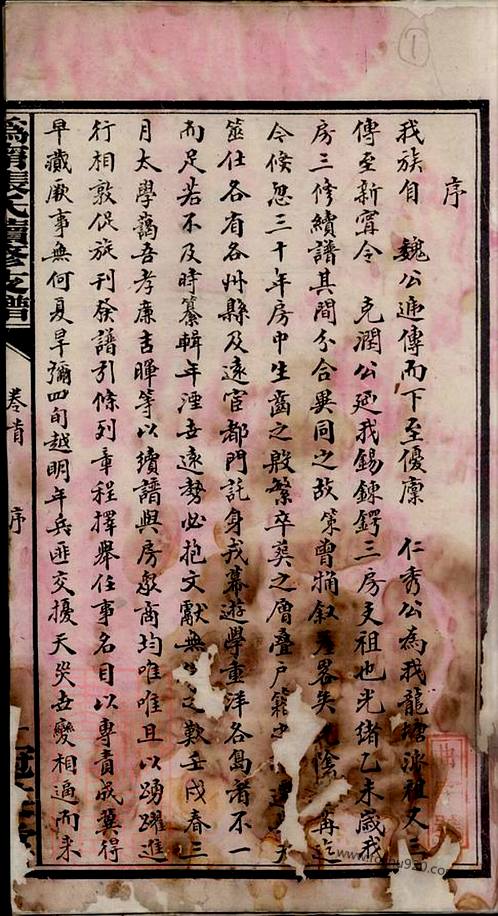 ①
序
我族自 魏公遞傳而下至優廩 仁秀公為我龍塘派祖又三
傳至新甯令 克潤公迺我錫鍊鍔三房支祖也光緒乙未歲我
房三修續譜其間分合異同之故策曾撮叙畧矣陰再迄
今倐忽三十年房中生齒之殷繁卒葬之層叠戶籍
筮仕各省各州縣及遠宦都門託身戎幕遊學重洋各島者不一
而足若不及時纂輯年湮世遠勢必抱文獻無之歎壬戌春三
月太學藹吾孝廉吉暉等以續譜與房衆商均唯唯且以踴躍進
行相敦促旋刊發譜引條列章程擇舉任事名目以專責成冀得
早藏厥事無何夏旱彌四旬越明年兵匪交擾天災世變相逼而来
張氏續修支譜
卷首 序